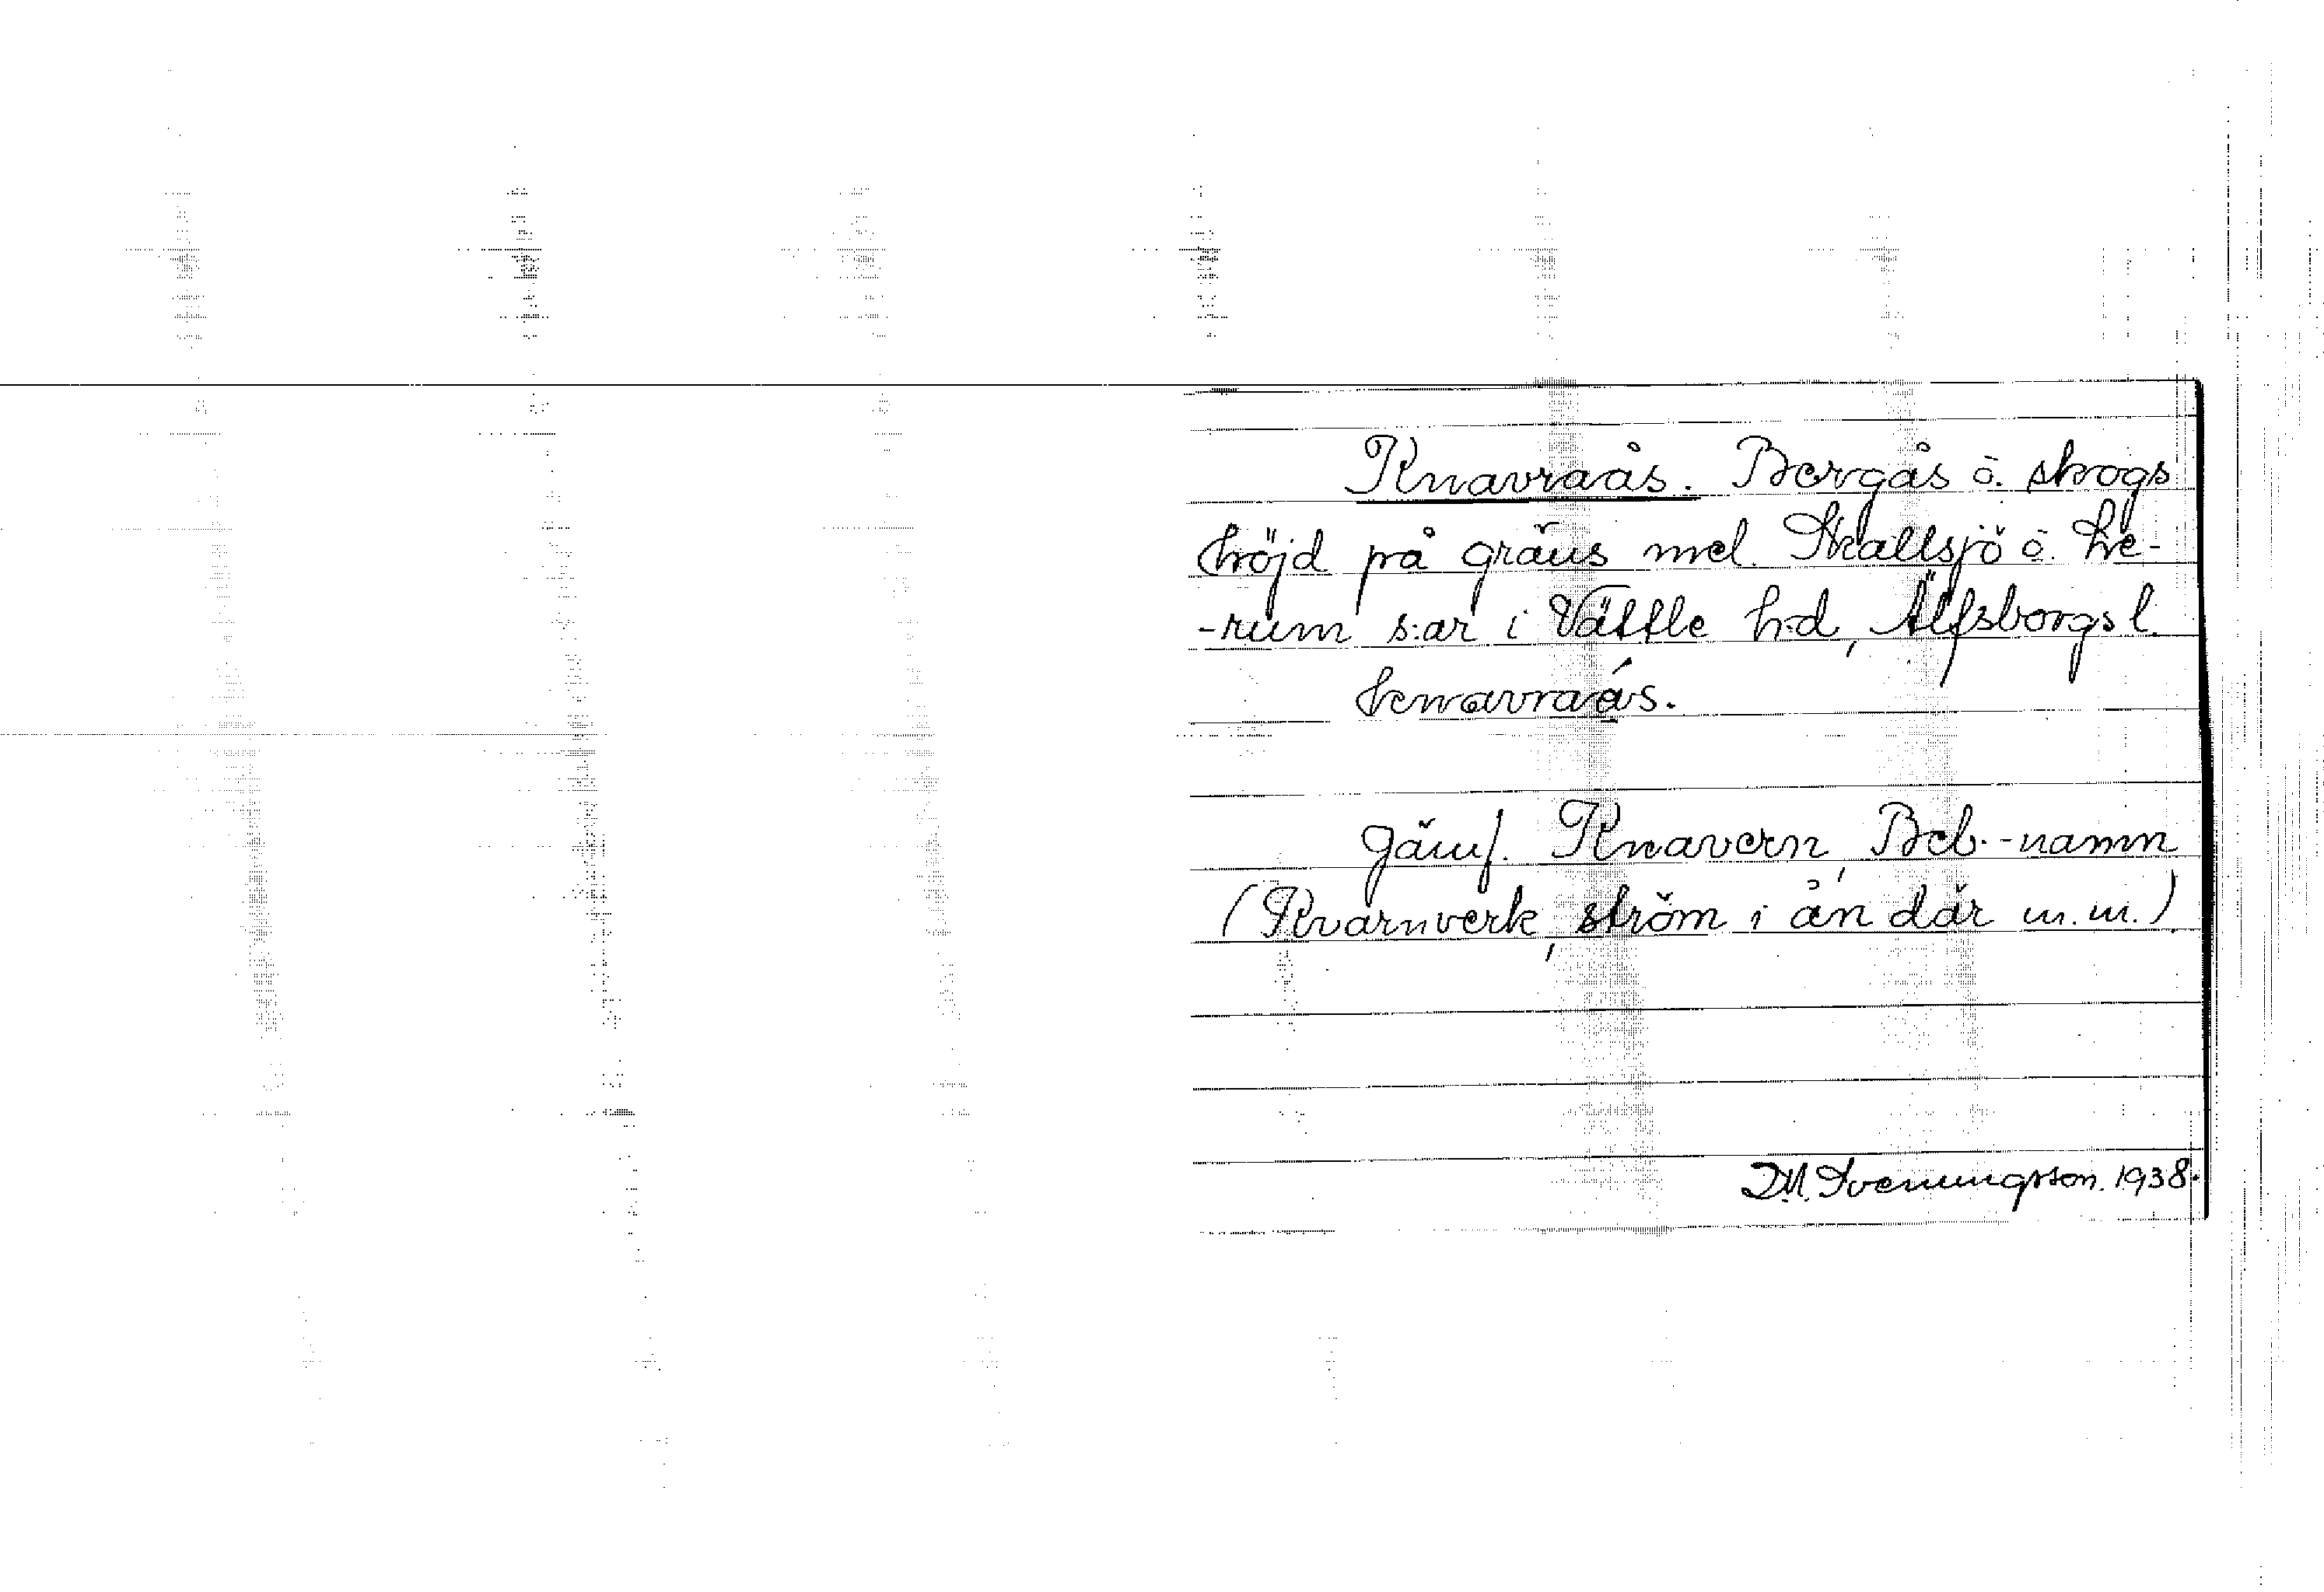 Knavraås. Bergås o. skogs
höjd på gräns mel. Skallsjö o. Le-
-rum s:ar i Vättle h:d, Älfsborgs l.
knavraås.
Jämf. Knavern, Beb.-namn
(Kvarnverk, ström i ån där m.m.)
D.M. Svenungsson. 1938.